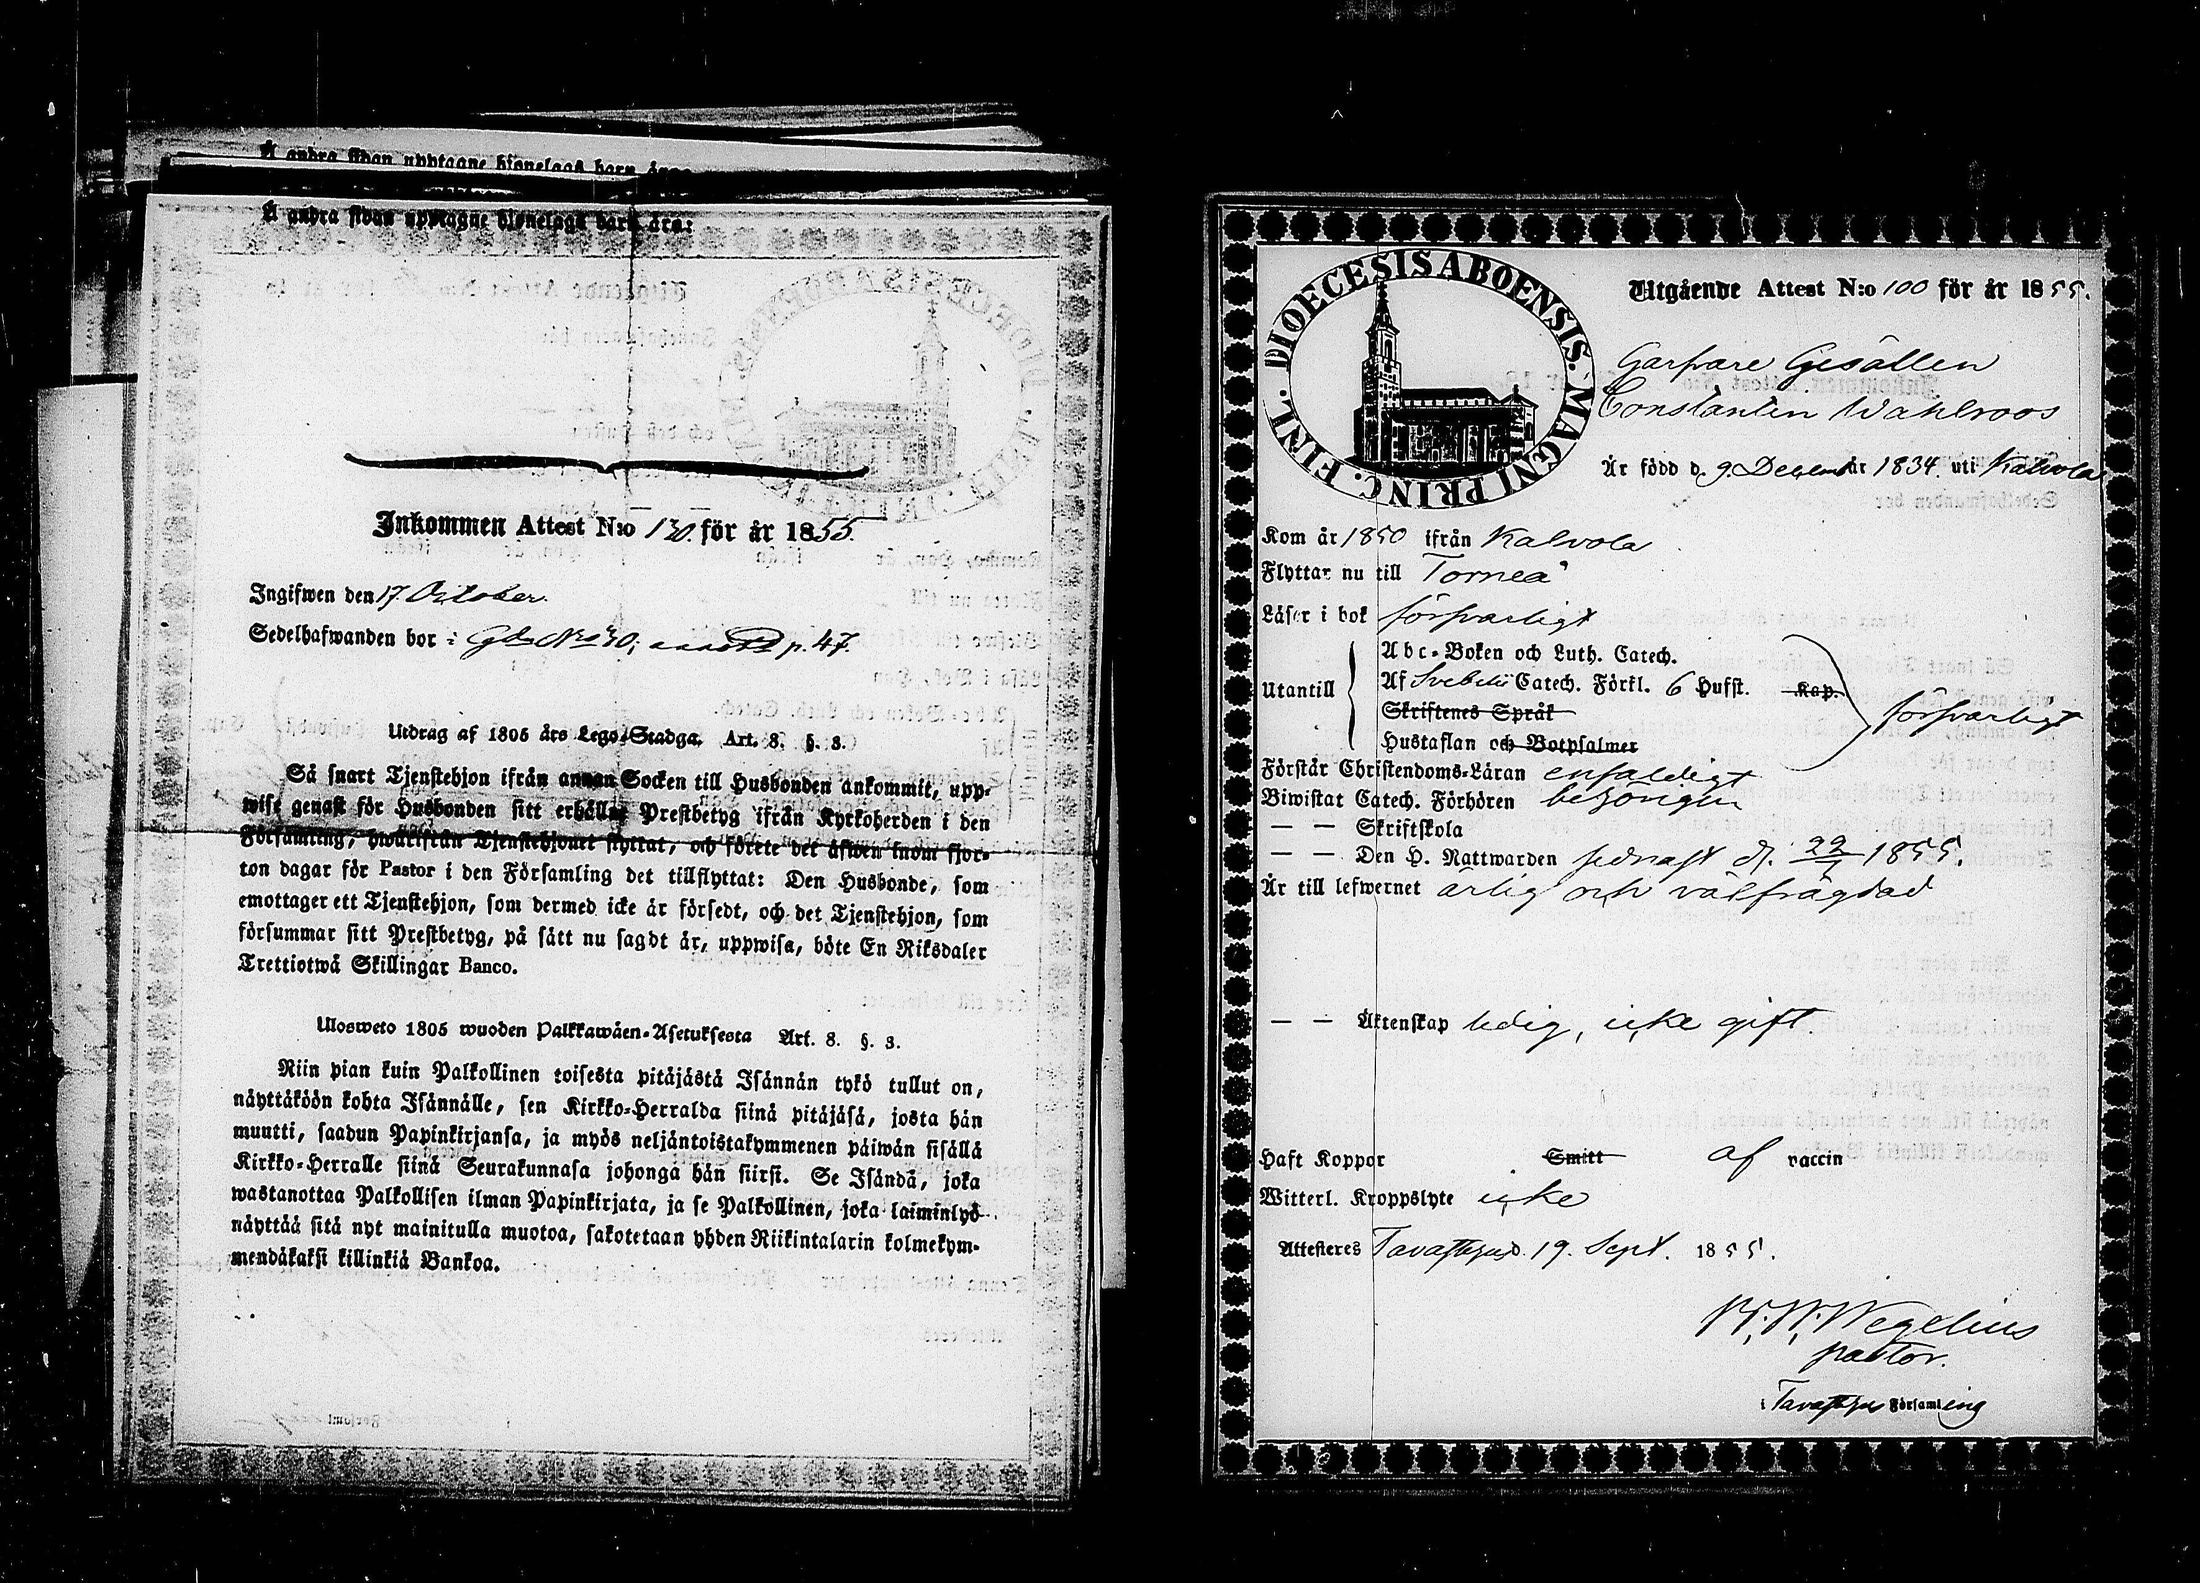 Å andra sidan upptagne hjonelags barn äro:
Å andra sidan upptagne hjonelags barn äro:
Inkommen Attest N:o 130. för år 1855.
Ingifwen den 17. October.
Sedelhafwanden bor i Gde No 30; p. 47.
Utdrag af 1805 års Lego-Stadga. Art. 8. §. 3.
Så snart Tjenstehjon ifrån annan Socken till Husbonden ankommit, upp-
wise genast för Husbonden sitt erhållne Prestbetyg ifrån Kyrkoherden i den
Församling, hwarifrån Tjenstehjonet flyttat, och förete det äfwen inom fjor-
ton dagar för Pastor i den Församling det tillflyttat: Den Husbonde, som
emottager ett Tjenstehjon, som dermed icke är försedt, och det Tjenstehjon, som
försummar sitt Prestbetyg, på sätt nu sagdt är, uppwisa, böte En Riksdaler
Trettiotwå Skillingar Banco.
Ulosweto 1805 wuoden Palkkawäen-Asetuksesta Art. 8. §. 3.
Niin pian kuin Palkollinen toisesta pitäjästä Isännän tykö tullut on,
näyttäköön kohta Isännälle, sen Kirkko-Herralda siinä pitäjäsä, josta hän
muutti, saadun Papinkirjansa, ja myös neljäntoistakymmenen päiwän sisällä
Kirkko-Herralle siinä Seurakunnasa johonga hän siirsi. Se Isändä, joka
wastanottaa Palkollisen ilman Papinkirjata, ja se Palkollinen, joka laiminlyö
näyttää sitä nyt mainitulla muotoa, sakotetaan yhden Riikintalarin kolmekym-
mendäkaksi killinkiä Bankoa.
DIOECESIS ABOENSIS. MAGNI PRINC. FINL.
Utgående Attest N:o 100 för år 1855.
Garfvare Gesällen
Constantin Wahlroos
Är född d. 9. December 1834. uti Kalvola
Kom år 1850 ifrån Kalvola
Flyttar nu till Torneå
Läser i bok försvarligt
Abc-Boken och Luth. Catech.
Utantill Af Svebelii Catech. Förkl. 6 Hufst. Kap. försvarligt
Skriftenes Språk
Hustaflan och Botpsalmer
Förstår Christendoms-Läran enfaldigt
Biwistat Catech. Förhören behörigen
— — Skriftskola
— — Den H. Nattwarden sednast d. 22/7 1855.
Är till lefwernet ärlig och välfrägdad
— — Äktenskap ledig, icke gift.
Haft Koppor Smitt af vaccin
Witterl. Kroppslyte icke
Attesteres Tavastehus d. 19. Sept. 1855.
Wegelius
pastor.
i Tavastehus Församling